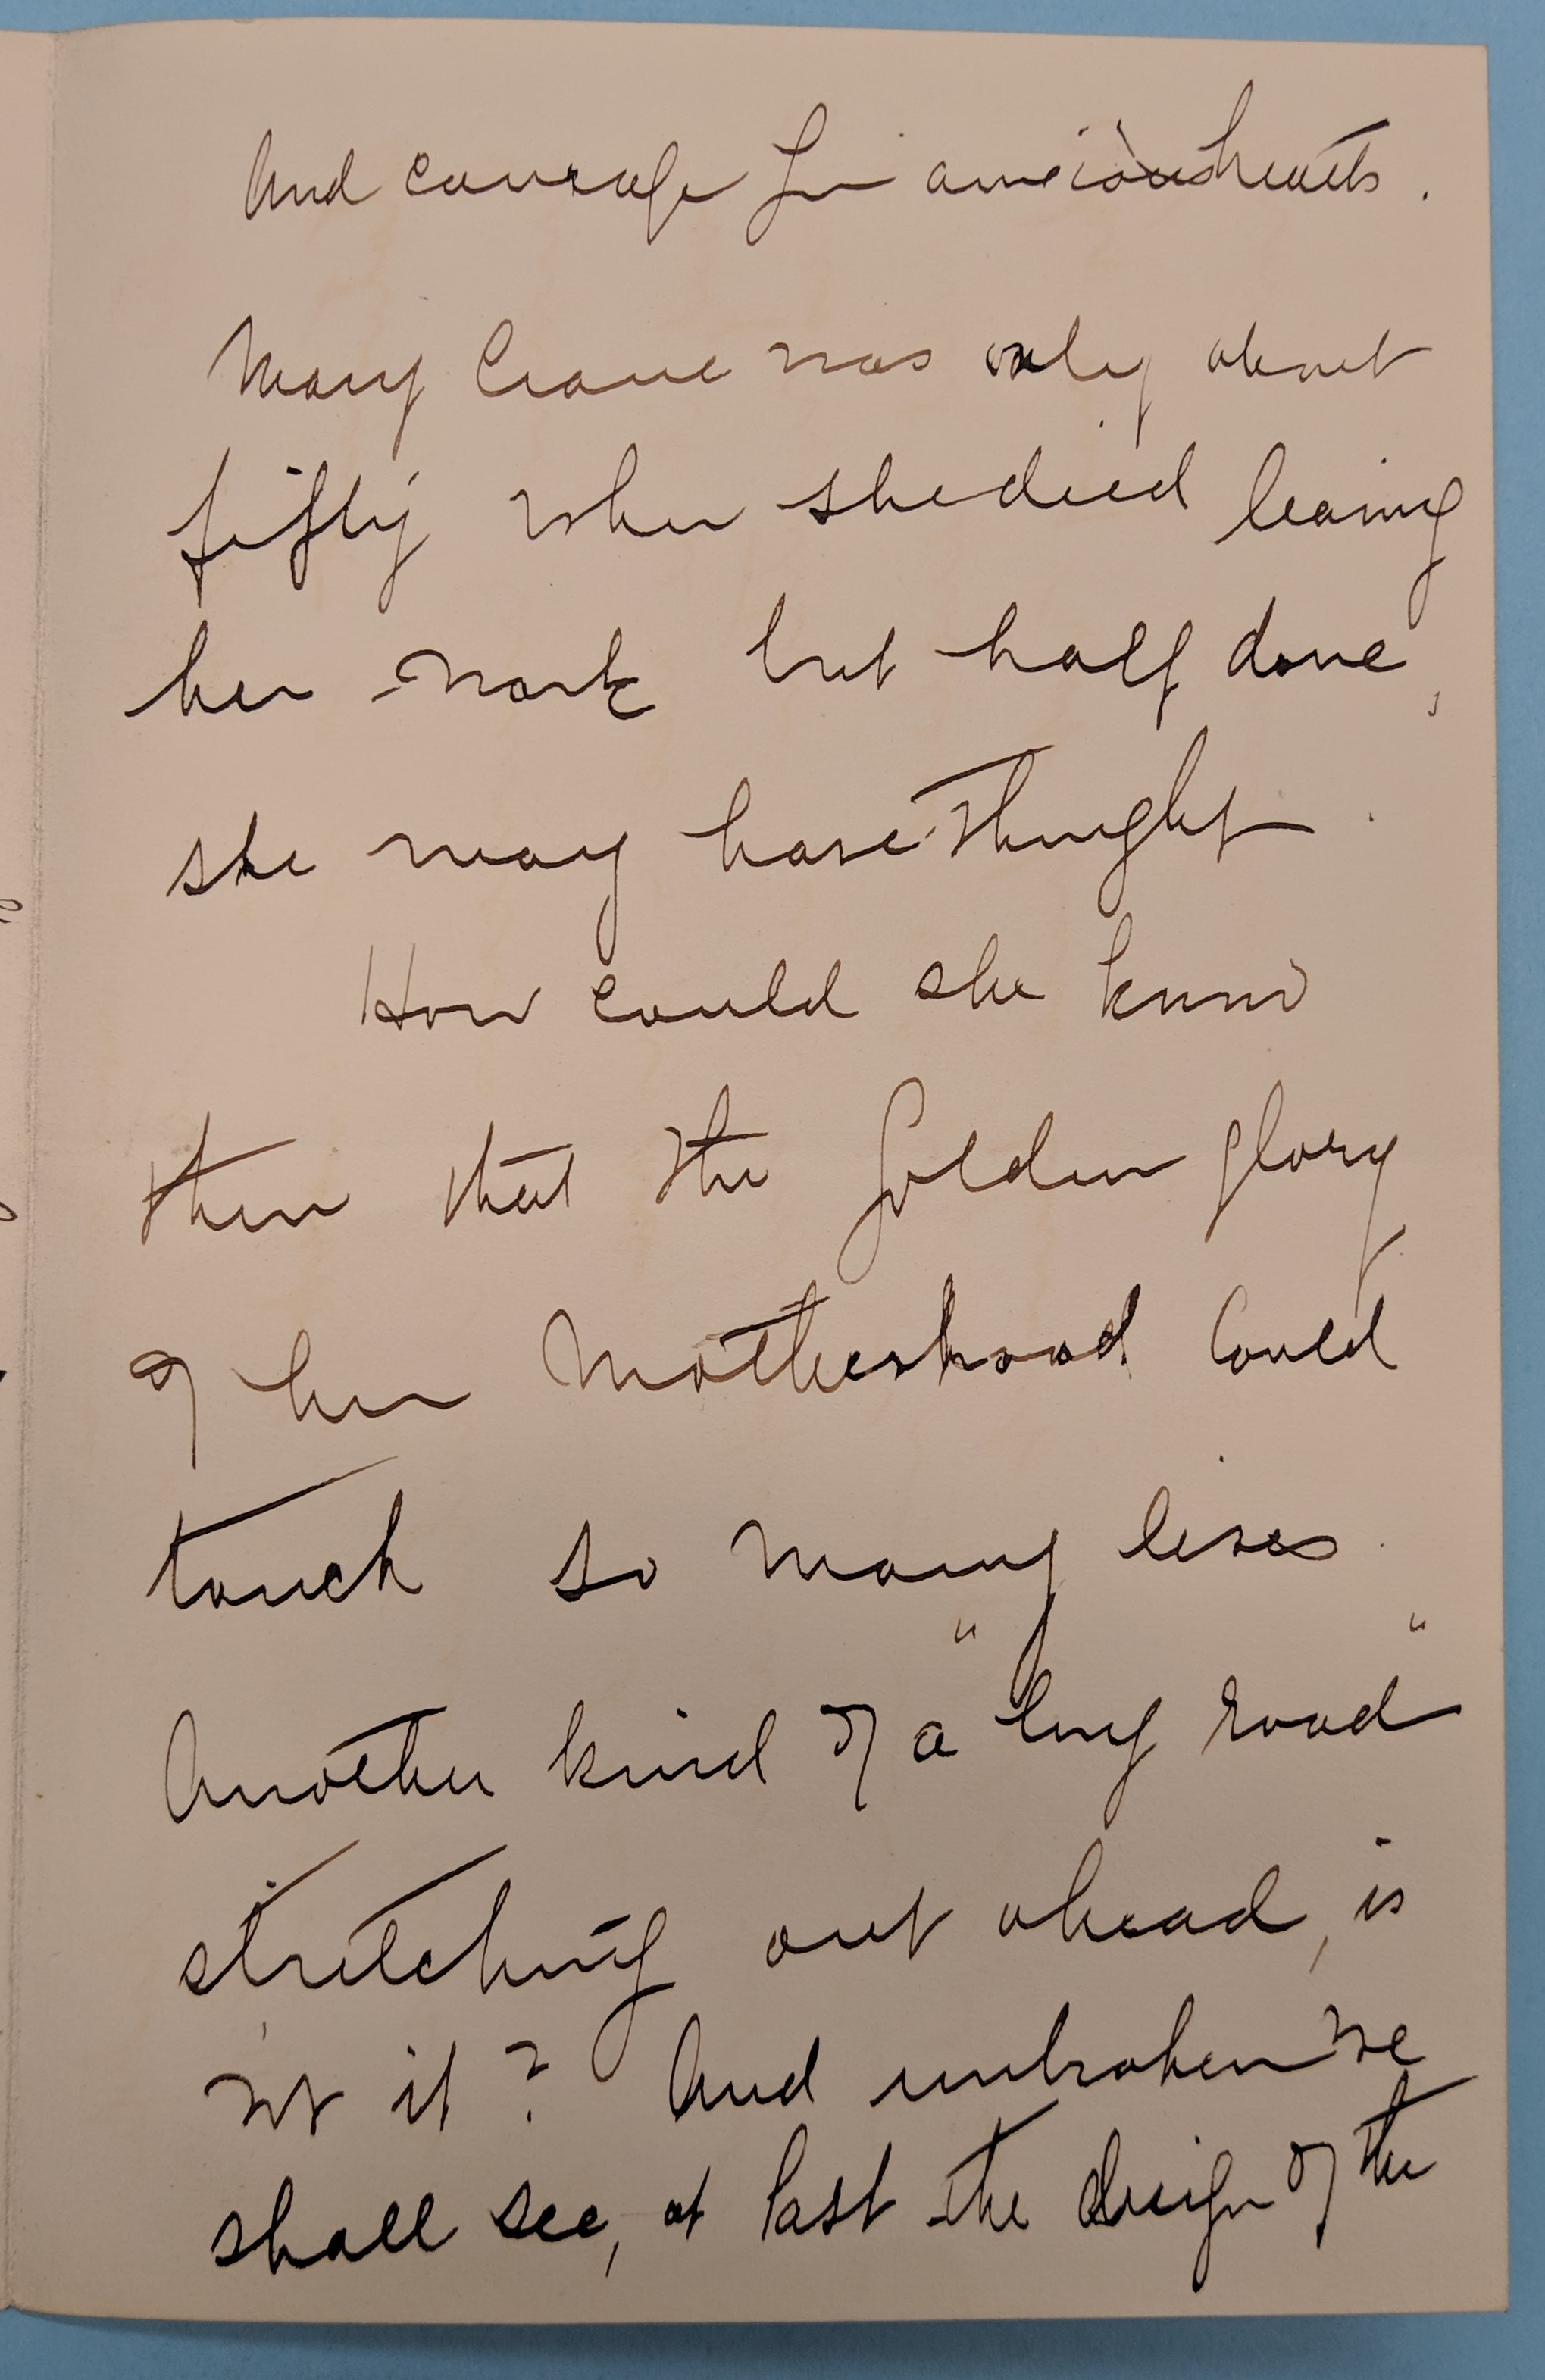 And courage for anxious hearts.
Mary Crane was only about
fifty when she died leaving
her work but half done,
she may have thought.
How could she know
then that the Golden glory
of her Motherhood Could
touch so many lives.
Another kind of a "long road"
stretching out ahead, is
n't it? And unbroken we
shall see, at last the design of the